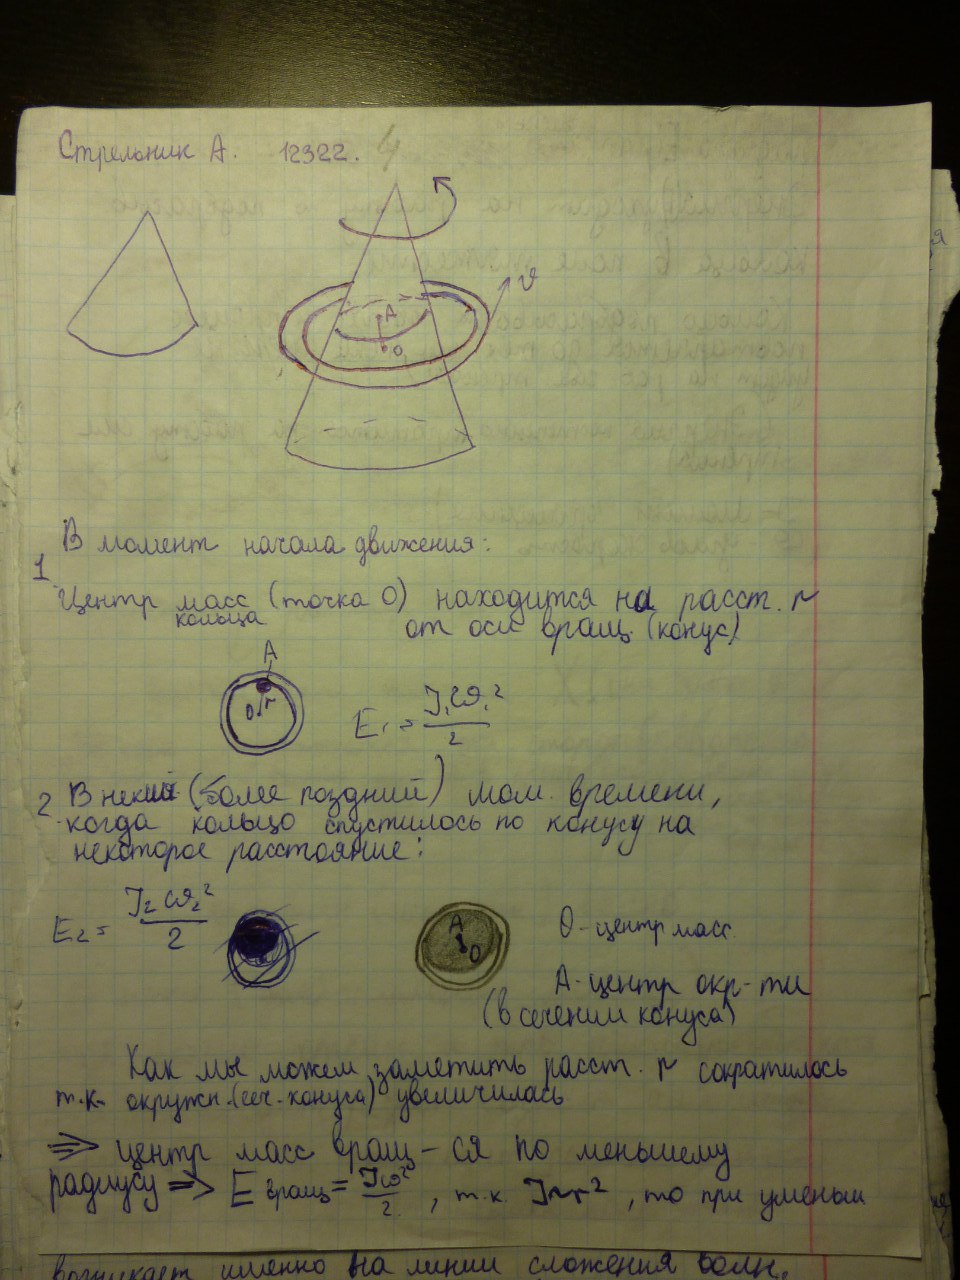 Стрельник А. 12322.
A
O
𝜗
В момент начала движения:
1
Центр масс (точка О) находится на расст. r
кольца
от оси вращ. (конус)
A
O r
E₁ = J₁ω₁²/2
2. В некий (более поздний) мом. времени,
когда кольцо спустилось по конусу на
некоторое расстояние:
E₂ = J₂ω₂²/2
A
O
О - центр масс
А - центр окр-ти
(в сечении конуса)
Как мы можем заметить расст. r сократилось
т.к. окружн. (сеч. конуса) увеличилась
⇒ центр масс вращ-ся по меньшему
радиусу ⇒ E вращ = Jω²/2, т.к. J~r², то при уменьш
возникает именно на линии сложения волн.